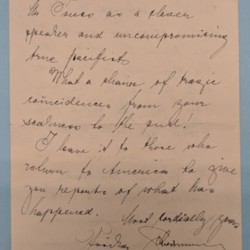 as a clever
speaker and uncompromising
true pacifist
What a chain of tragic
coincidences from your
to the end!
I leave it to those who
return to America to give
you reports of what has
happened.
Most cordially yours,